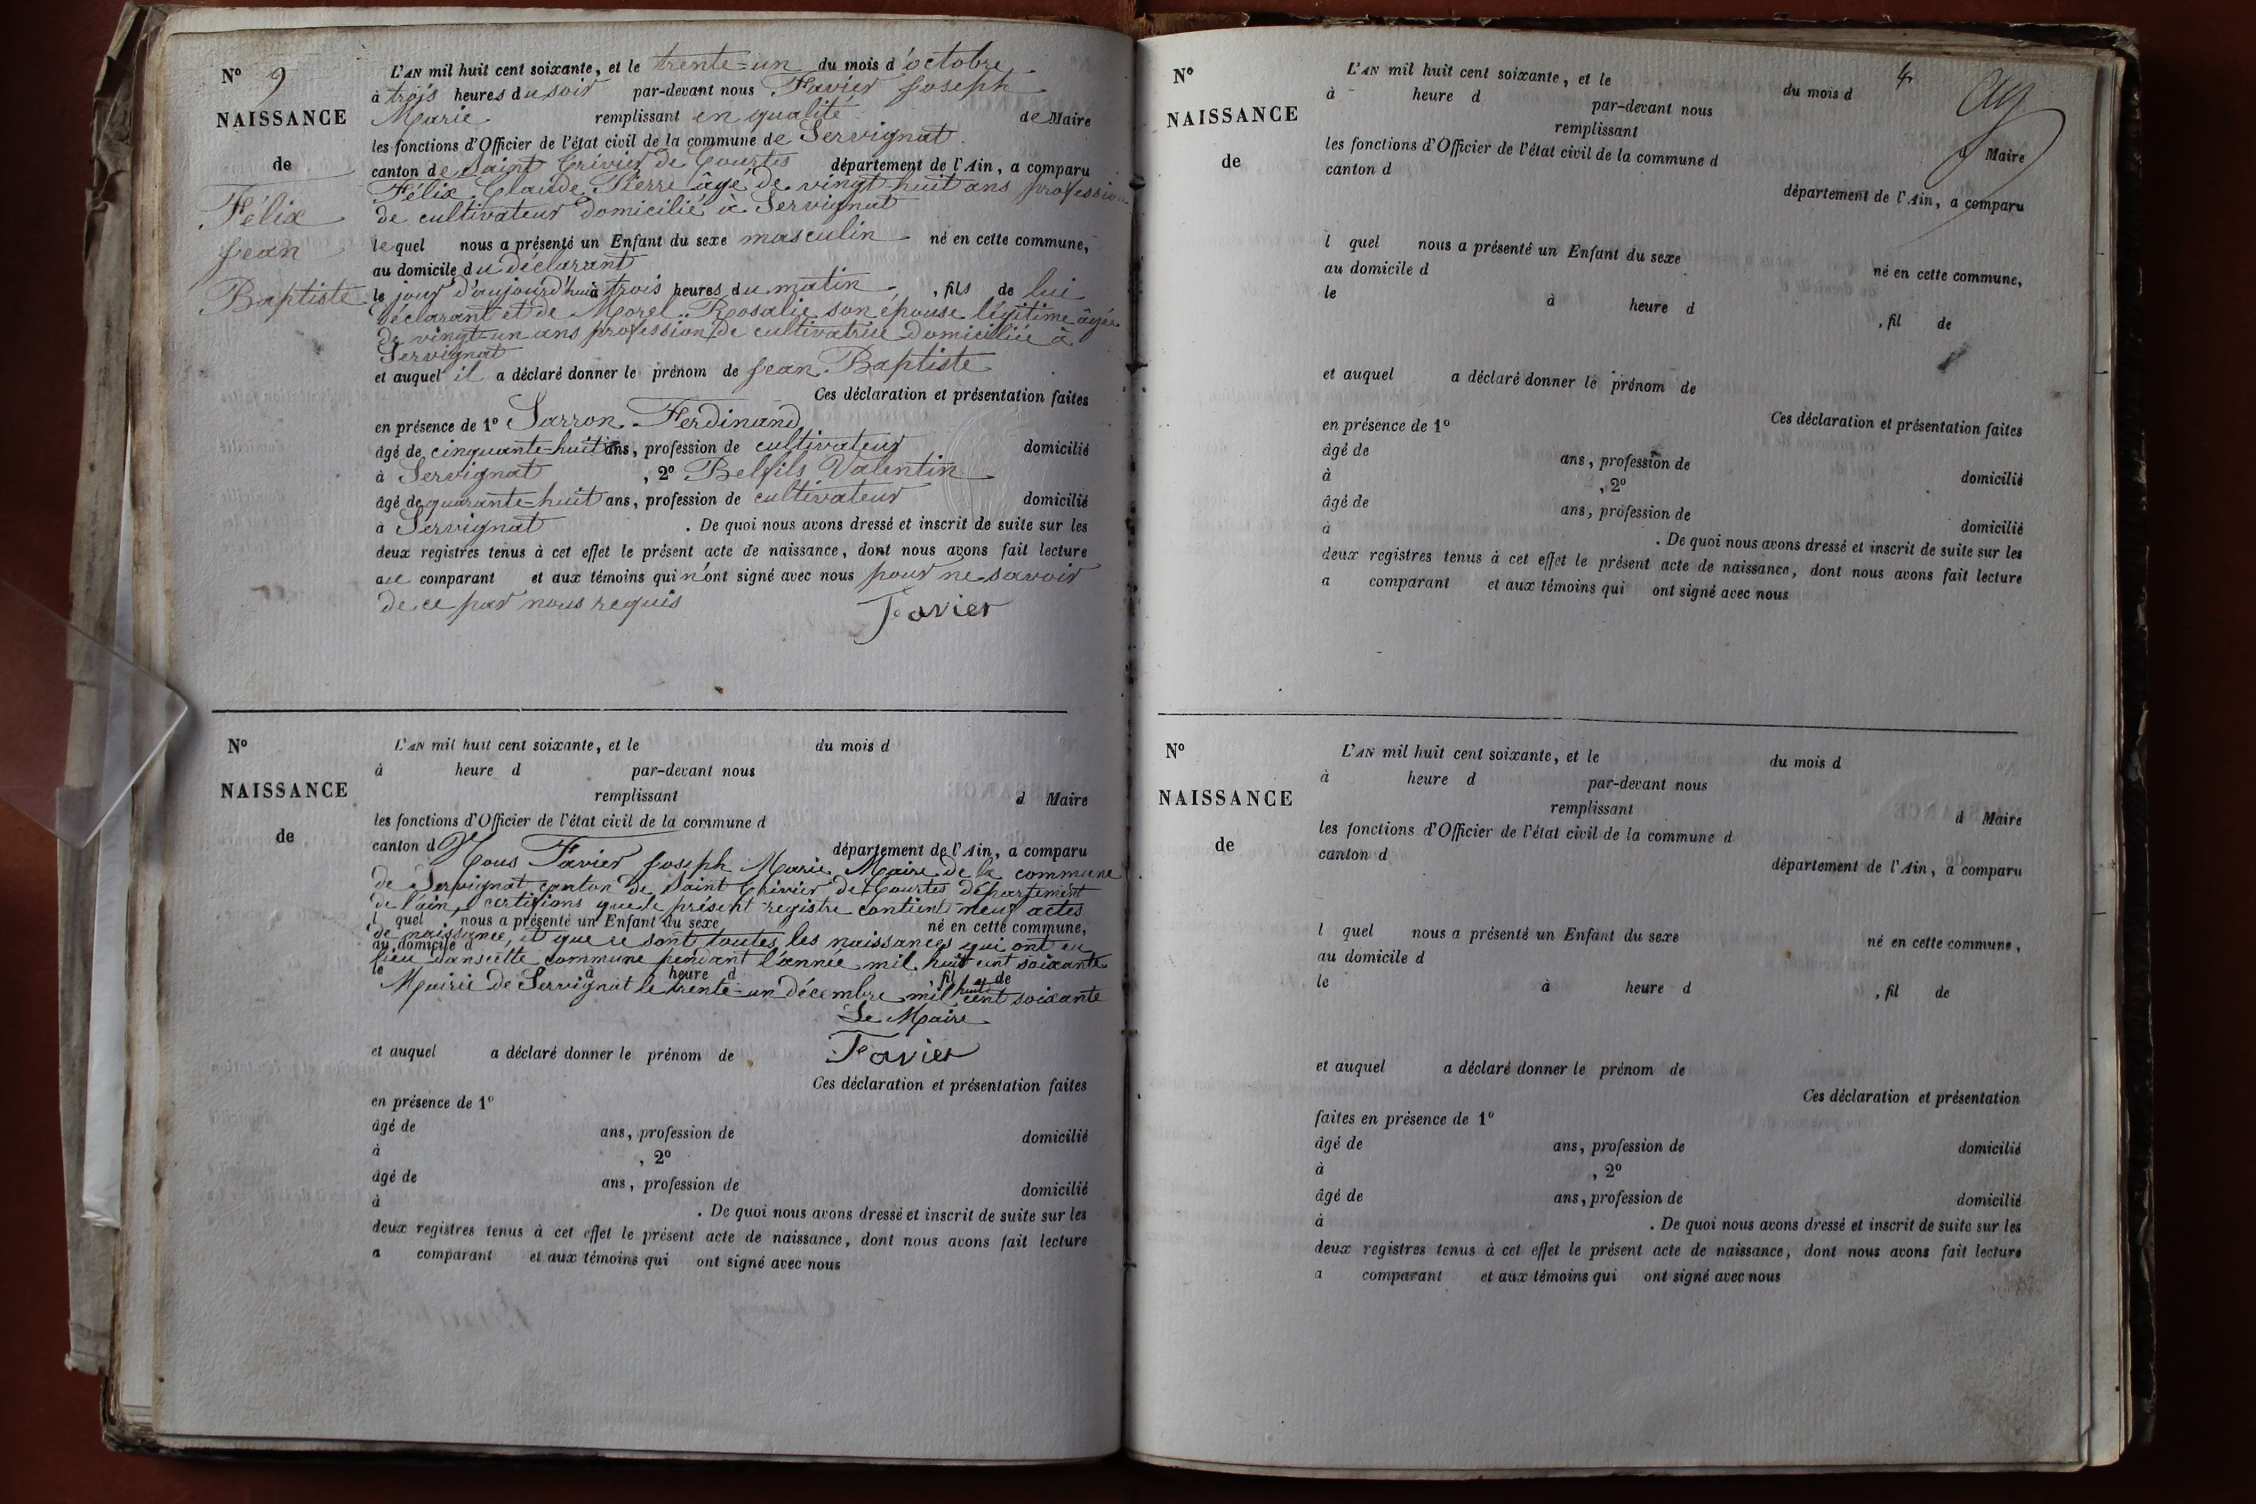 N° 9
NAISSANCE
de
Félix
Jean
Baptiste
L'AN mil huit cent soixante, et le trente-un du mois d'octobre
à trois heures du soir par-devant nous Favier Joseph
Marie remplissant en qualité de Maire
les fonctions d'Officier de l'état civil de la commune de Servignat
canton de Saint Trivier de Courtes département de l'Ain, a comparu
Félix Claude Pierre âgé de vingt-huit ans profession
de cultivateur domicilié à Servignat
lequel nous a présenté un Enfant du sexe masculin né en cette commune,
au domicile du déclarant
le jour d'aujourd'hui à trois heures du matin, fils de lui
déclarant et de Morel Rosalie son épouse légitime âgée
de vingt-un ans profession de cultivatrice domiciliée à
Servignat
et auquel il a déclaré donner le prénom de Jean Baptiste
Ces déclaration et présentation faites
en présence de 1° Sarron Ferdinand
âgé de cinquante-huit ans, profession de cultivateur domicilié
à Servignat, 2° Belfils Valentin
âgé de quarante-huit ans, profession de cultivateur domicilié
à Servignat. De quoi nous avons dressé et inscrit de suite sur les
deux registres tenus à cet effet le présent acte de naissance, dont nous avons fait lecture
au comparant et aux témoins qui n'ont signé avec nous pour ne savoir
de ce par nous requis Favier
N°
NAISSANCE
de
L'AN mil huit cent soixante, et le du mois d
à heure d par-devant nous
remplissant d Maire
les fonctions d'Officier de l'état civil de la commune d
canton d département de l'Ain, a comparu
Nous Favier Joseph Marie Maire de la commune
de Servignat canton de Saint Trivier de Courtes département
de l'ain, certifions que le présent registre contient neuf actes
l quel nous a présenté un Enfant du sexe né en cette commune,
de naissance, et que ce sont toutes les naissances qui ont eu
au domicile d
lieu dans cette commune pendant l'année mil huit cent soixante
le à heure d fil de
Mairie de Servignat le trente-un décembre mil huit cent soixante
Le Maire
Favier
et auquel a déclaré donner le prénom de
Ces déclaration et présentation faites
en présence de 1°
âgé de ans, profession de domicilié
à , 2°
âgé de ans, profession de domicilié
à . De quoi nous avons dressé et inscrit de suite sur les
deux registres tenus à cet effet le présent acte de naissance, dont nous avons fait lecture
a comparant et aux témoins qui ont signé avec nous
N°
NAISSANCE
de
L'AN mil huit cent soixante, et le du mois d
à heure d par-devant nous
remplissant d Maire
les fonctions d'Officier de l'état civil de la commune d
canton d département de l'Ain, a comparu
l quel nous a présenté un Enfant du sexe né en cette commune,
au domicile d
le à heure d , fil de
et auquel a déclaré donner le prénom de
Ces déclaration et présentation faites
en présence de 1°
âgé de ans, profession de domicilié
à , 2°
âgé de ans, profession de domicilié
à . De quoi nous avons dressé et inscrit de suite sur les
deux registres tenus à cet effet le présent acte de naissance, dont nous avons fait lecture
a comparant et aux témoins qui ont signé avec nous
N°
NAISSANCE
de
L'AN mil huit cent soixante, et le du mois d
à heure d par-devant nous
remplissant d Maire
les fonctions d'Officier de l'état civil de la commune d
canton d département de l'Ain, a comparu
l quel nous a présenté un Enfant du sexe né en cette commune,
au domicile d
le à heure d , fil de
et auquel a déclaré donner le prénom de
Ces déclaration et présentation
faites en présence de 1°
âgé de ans, profession de domicilié
à , 2°
âgé de ans, profession de domicilié
à . De quoi nous avons dressé et inscrit de suite sur les
deux registres tenus à cet effet le présent acte de naissance, dont nous avons fait lecture
a comparant et aux témoins qui ont signé avec nous